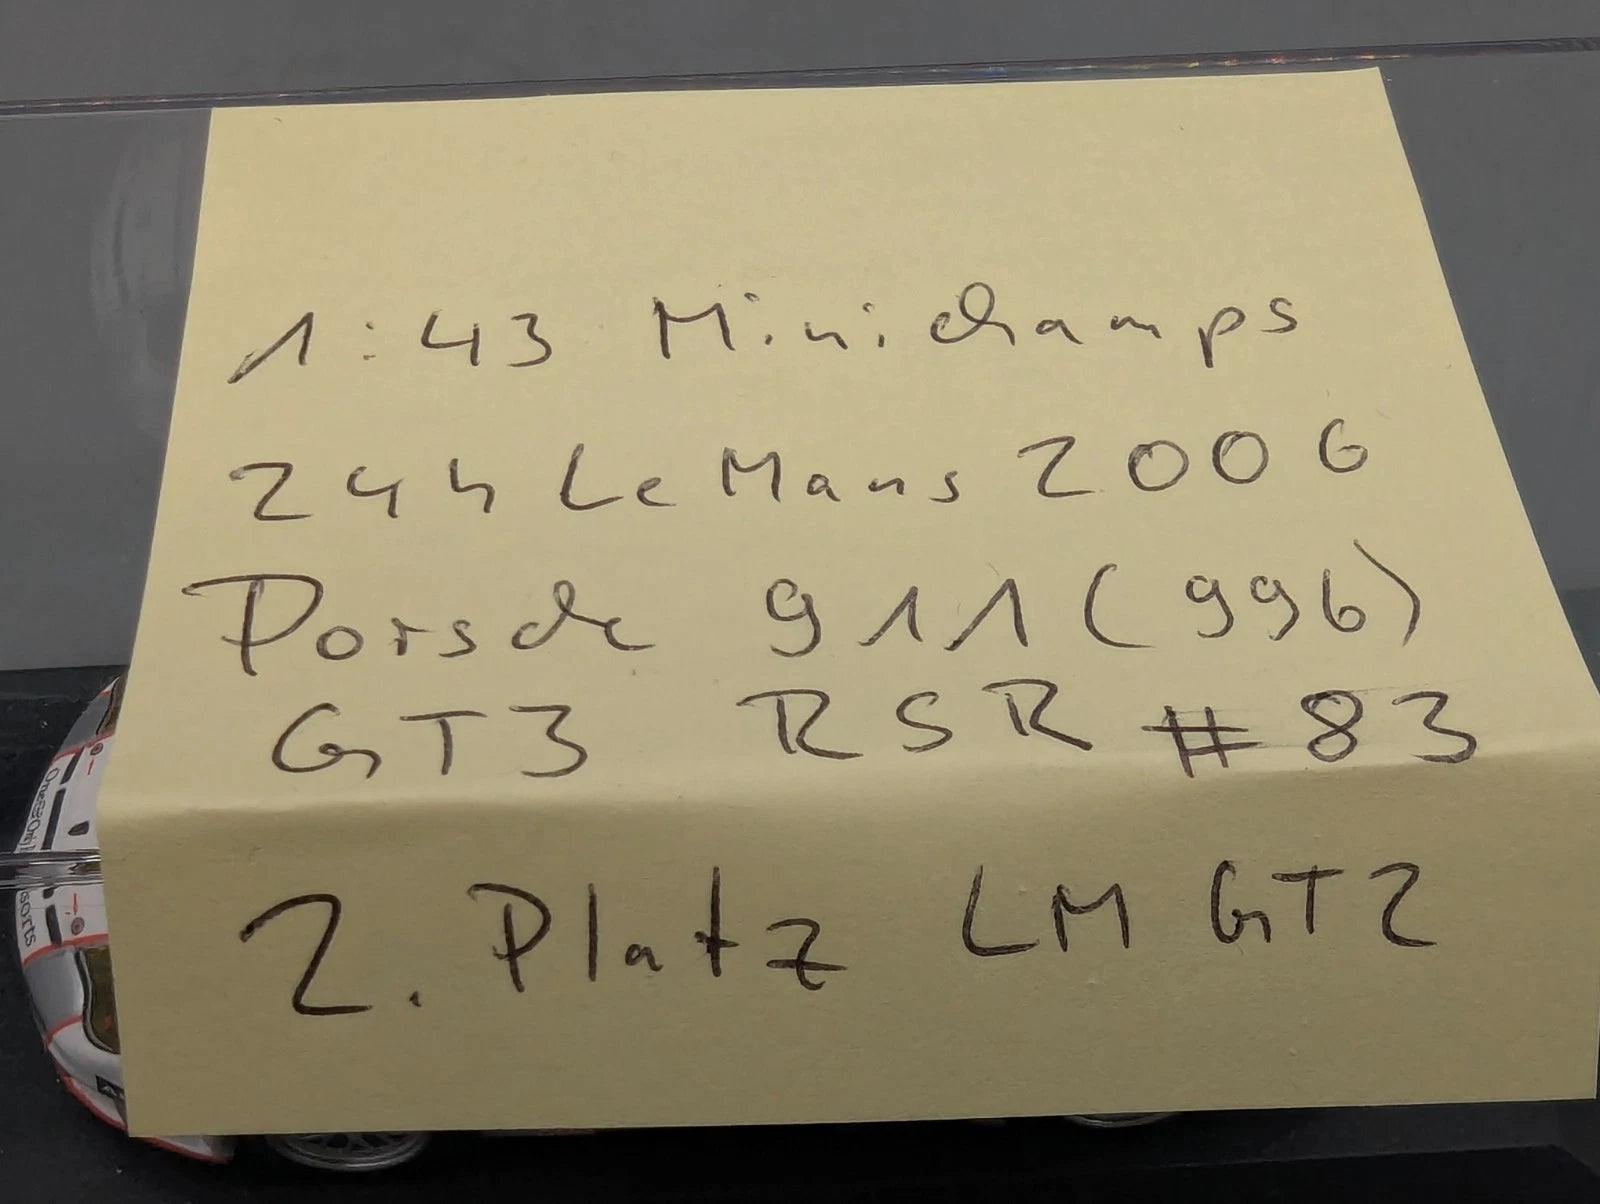 1:43 Minichamps
24h Le Mans 2006
Porsche 911 (996)
GT3 RSR #83
2. Platz LM GT2